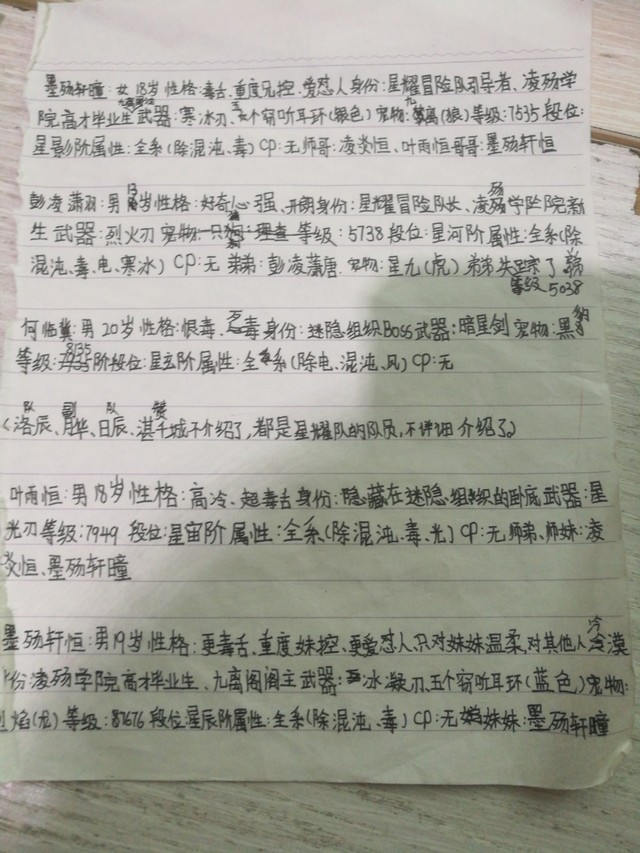 墨殇轩瞳:女 18岁 性格:毒舌、重度兄控、爱怼人 身份:星耀冒险队引导者、凌殇学
院高才毕业生 武器:寒冰刃、五个窃听耳环(银色) 宠物:九 (狼) 等级:7535 段位:
星影阶 属性:全系(除混沌、毒) CP:无 师哥:凌炎恒、叶雨恒 哥哥:墨殇轩恒
彭凌萧羽:男 13岁 性格:好奇心强、开朗 身份:星耀冒险队长、凌殇学院新
生 武器:烈火刃 等级:5738 段位:星河阶 属性:全系(除
混沌、毒、电、寒冰) CP:无 弟弟:彭凌萧唐 宠物:星九(虎) 弟弟失踪了
等级5038
何临冀:男 20岁 性格:恨毒、毒 身份:迷隐组织Boss 武器:暗星剑 宠物:黑豹
等级:8135 阶段位:星玄阶 属性:全系(除电、混沌、风) CP:无
(洛辰、月华、日辰、湛千城不介绍了,都是星耀队的队员,不详细介绍了)
队 副 队 赞
叶雨恒:男 18岁 性格:高冷、超毒舌 身份:隐藏在迷隐组织的卧底 武器:星
光刃 等级:7949 段位:星宙阶 属性:全系(除混沌、毒、光) CP:无 师弟、师妹:凌
炎恒、墨殇轩瞳
墨殇轩恒:男 19岁 性格:更毒舌、重度妹控、更爱怼人、只对妹妹温柔,对其他人冷漠
份凌殇学院高才毕业生、九离阁阁主 武器:冰凝刃、五个窃听耳环(蓝色) 宠物:
焰(龙) 等级:87676 段位星辰阶 属性:全系(除混沌、毒) CP:无 妹妹:墨殇轩瞳